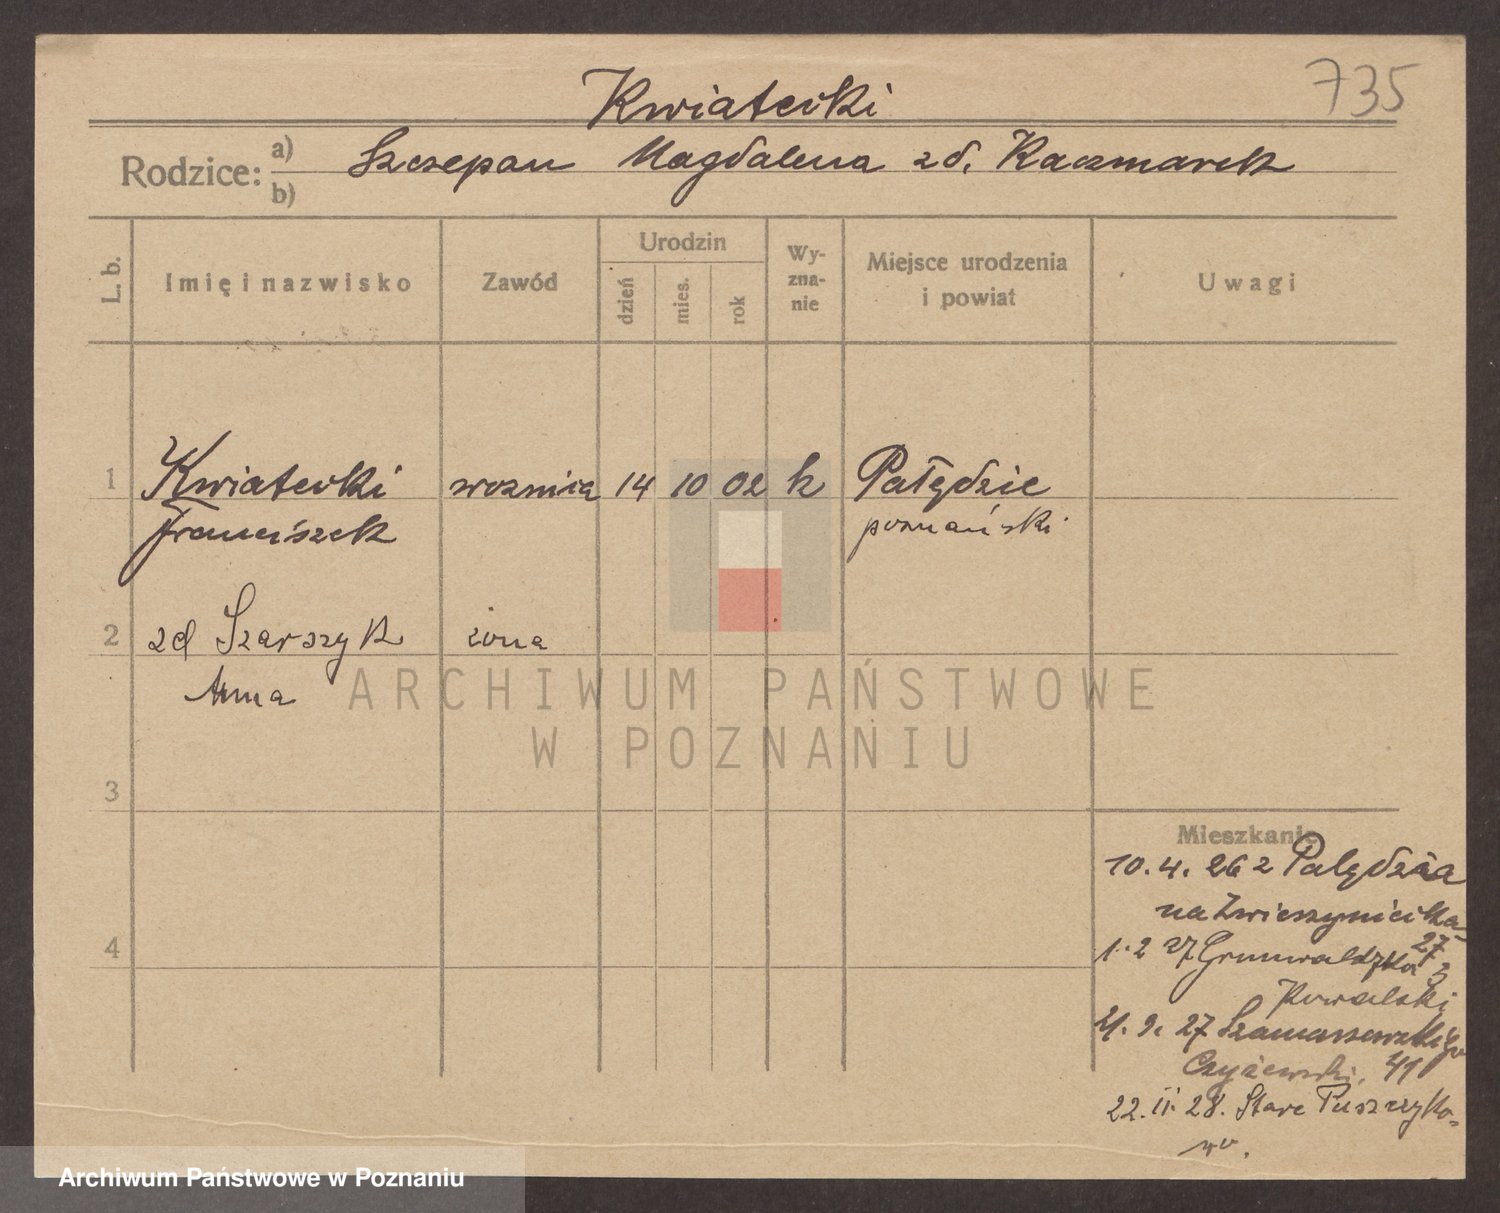 735
Kwiatecki
Rodzice: a) Szczepan Magdalena zd. Kaczmarek
b)
L. b. Imię i nazwisko Zawód Urodzin dzień mies. rok Wyznanie Miejsce urodzenia i powiat Uwagi
1 Kwiatecki woźnica 14 10 02 k Pałędzie
Franciszek poznański
2 zd Szarszyk żona
Anna
ARCHIWUM PAŃSTWOWE
W POZNANIU
3
Mieszkanie
10. 4. 26 z Palędzia
na Zwierzyniecka
27
4
1. 2 27 Grunwaldzka 3
Kowalski
21. 9. 27
Czyżewski, 41
22. II. 28. Stare Puszczyko-
wo.
Archiwum Państwowe w Poznaniu